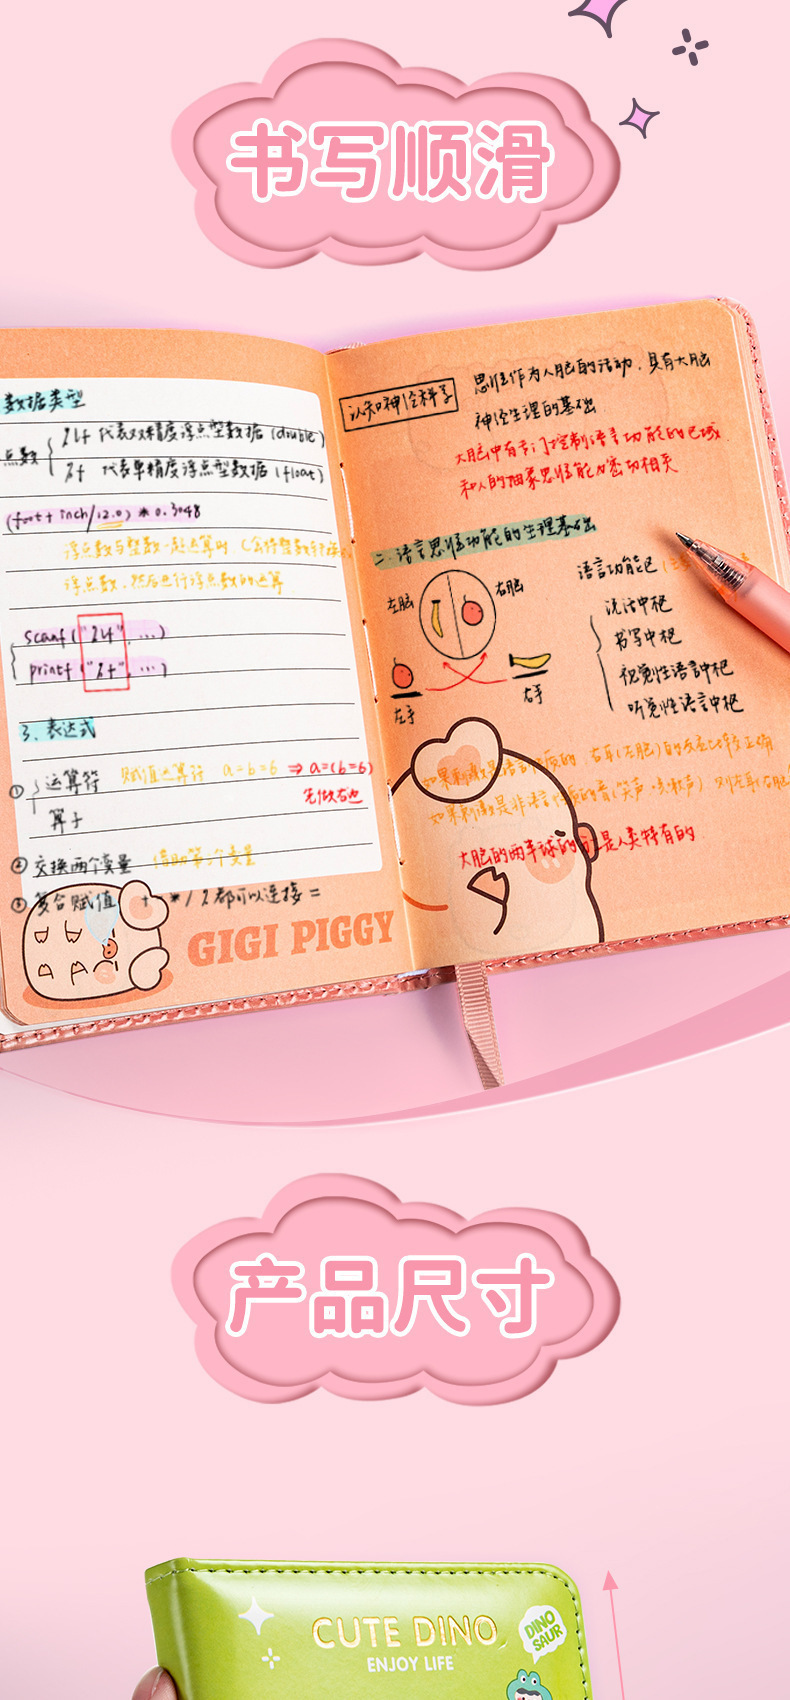 书写顺滑
数据类型
点数
代表双精度浮点型数据(double)
代表单精度浮点型数据(float)
(foot+inch/12.0)*0.3048
浮点数与整数一起运算时
浮点数,然后进行浮点数的运算
scanf(
printf(
3.表达式
① 运算符 赋值运算符 a=b=6 ⇒ a=(b=6)
先做右边
算子
② 交换两个变量 借助第三个变量
③ 复合赋值 + - * / % 都可以连接 =
GIGI PIGGY
认知神经科学
思维作为人脑的活动,具有大脑
神经生理的基础
大脑中有专门控制语言功能的区域
和人的抽象思维能力密切相关
二.语言思维功能的生理基础
左脑 右脑
左手 右手
语言功能区
说话中枢
书写中枢
视觉性语言中枢
听觉性语言中枢
如果刺激是语言性质的 右耳(左脑)的反应
如果刺激是非语言性质的
大脑的两半球的 是人类特有的
产品尺寸
CUTE DINO
ENJOY LIFE
DINO
SAUR